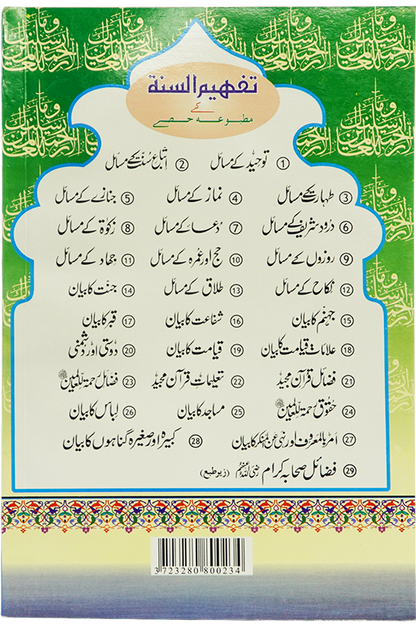 تفہیم السنۃ
کے
مطبوعہ حصے
① توحید کے مسائل ② اتباعِ سُنت کے مسائل
③ طہارت کے مسائل ④ نماز کے مسائل ⑤ جنازے کے مسائل
⑥ درود شریف کے مسائل ⑦ دُعا کے مسائل ⑧ زکوٰۃ کے مسائل
⑨ روزوں کے مسائل ⑩ حج اور عمرہ کے مسائل ⑪ جہاد کے مسائل
⑫ نکاح کے مسائل ⑬ طلاق کے مسائل ⑭ جنت کا بیان
⑮ جہنم کا بیان ⑯ شفاعت کا بیان ⑰ قبر کا بیان
⑱ علاماتِ قیامت کا بیان ⑲ قیامت کا بیان ⑳ دوستی اور دشمنی
㉑ فضائل قرآن مجید ㉒ تعلیمات قرآن مجید ㉓ فضائل رحمۃ للعالمین ﷺ
㉔ حقوق رحمۃ للعالمین ㉕ مساجد کا بیان ㉖ لباس کا بیان
㉗ امر بالمعروف اور نہی عن المنکر کا بیان ㉘ کبیرہ اور صغیرہ گناہوں کا بیان
㉙ فضائل صحابہ کرام رضی اللہ عنہم (زیر طبع)
3723280800234